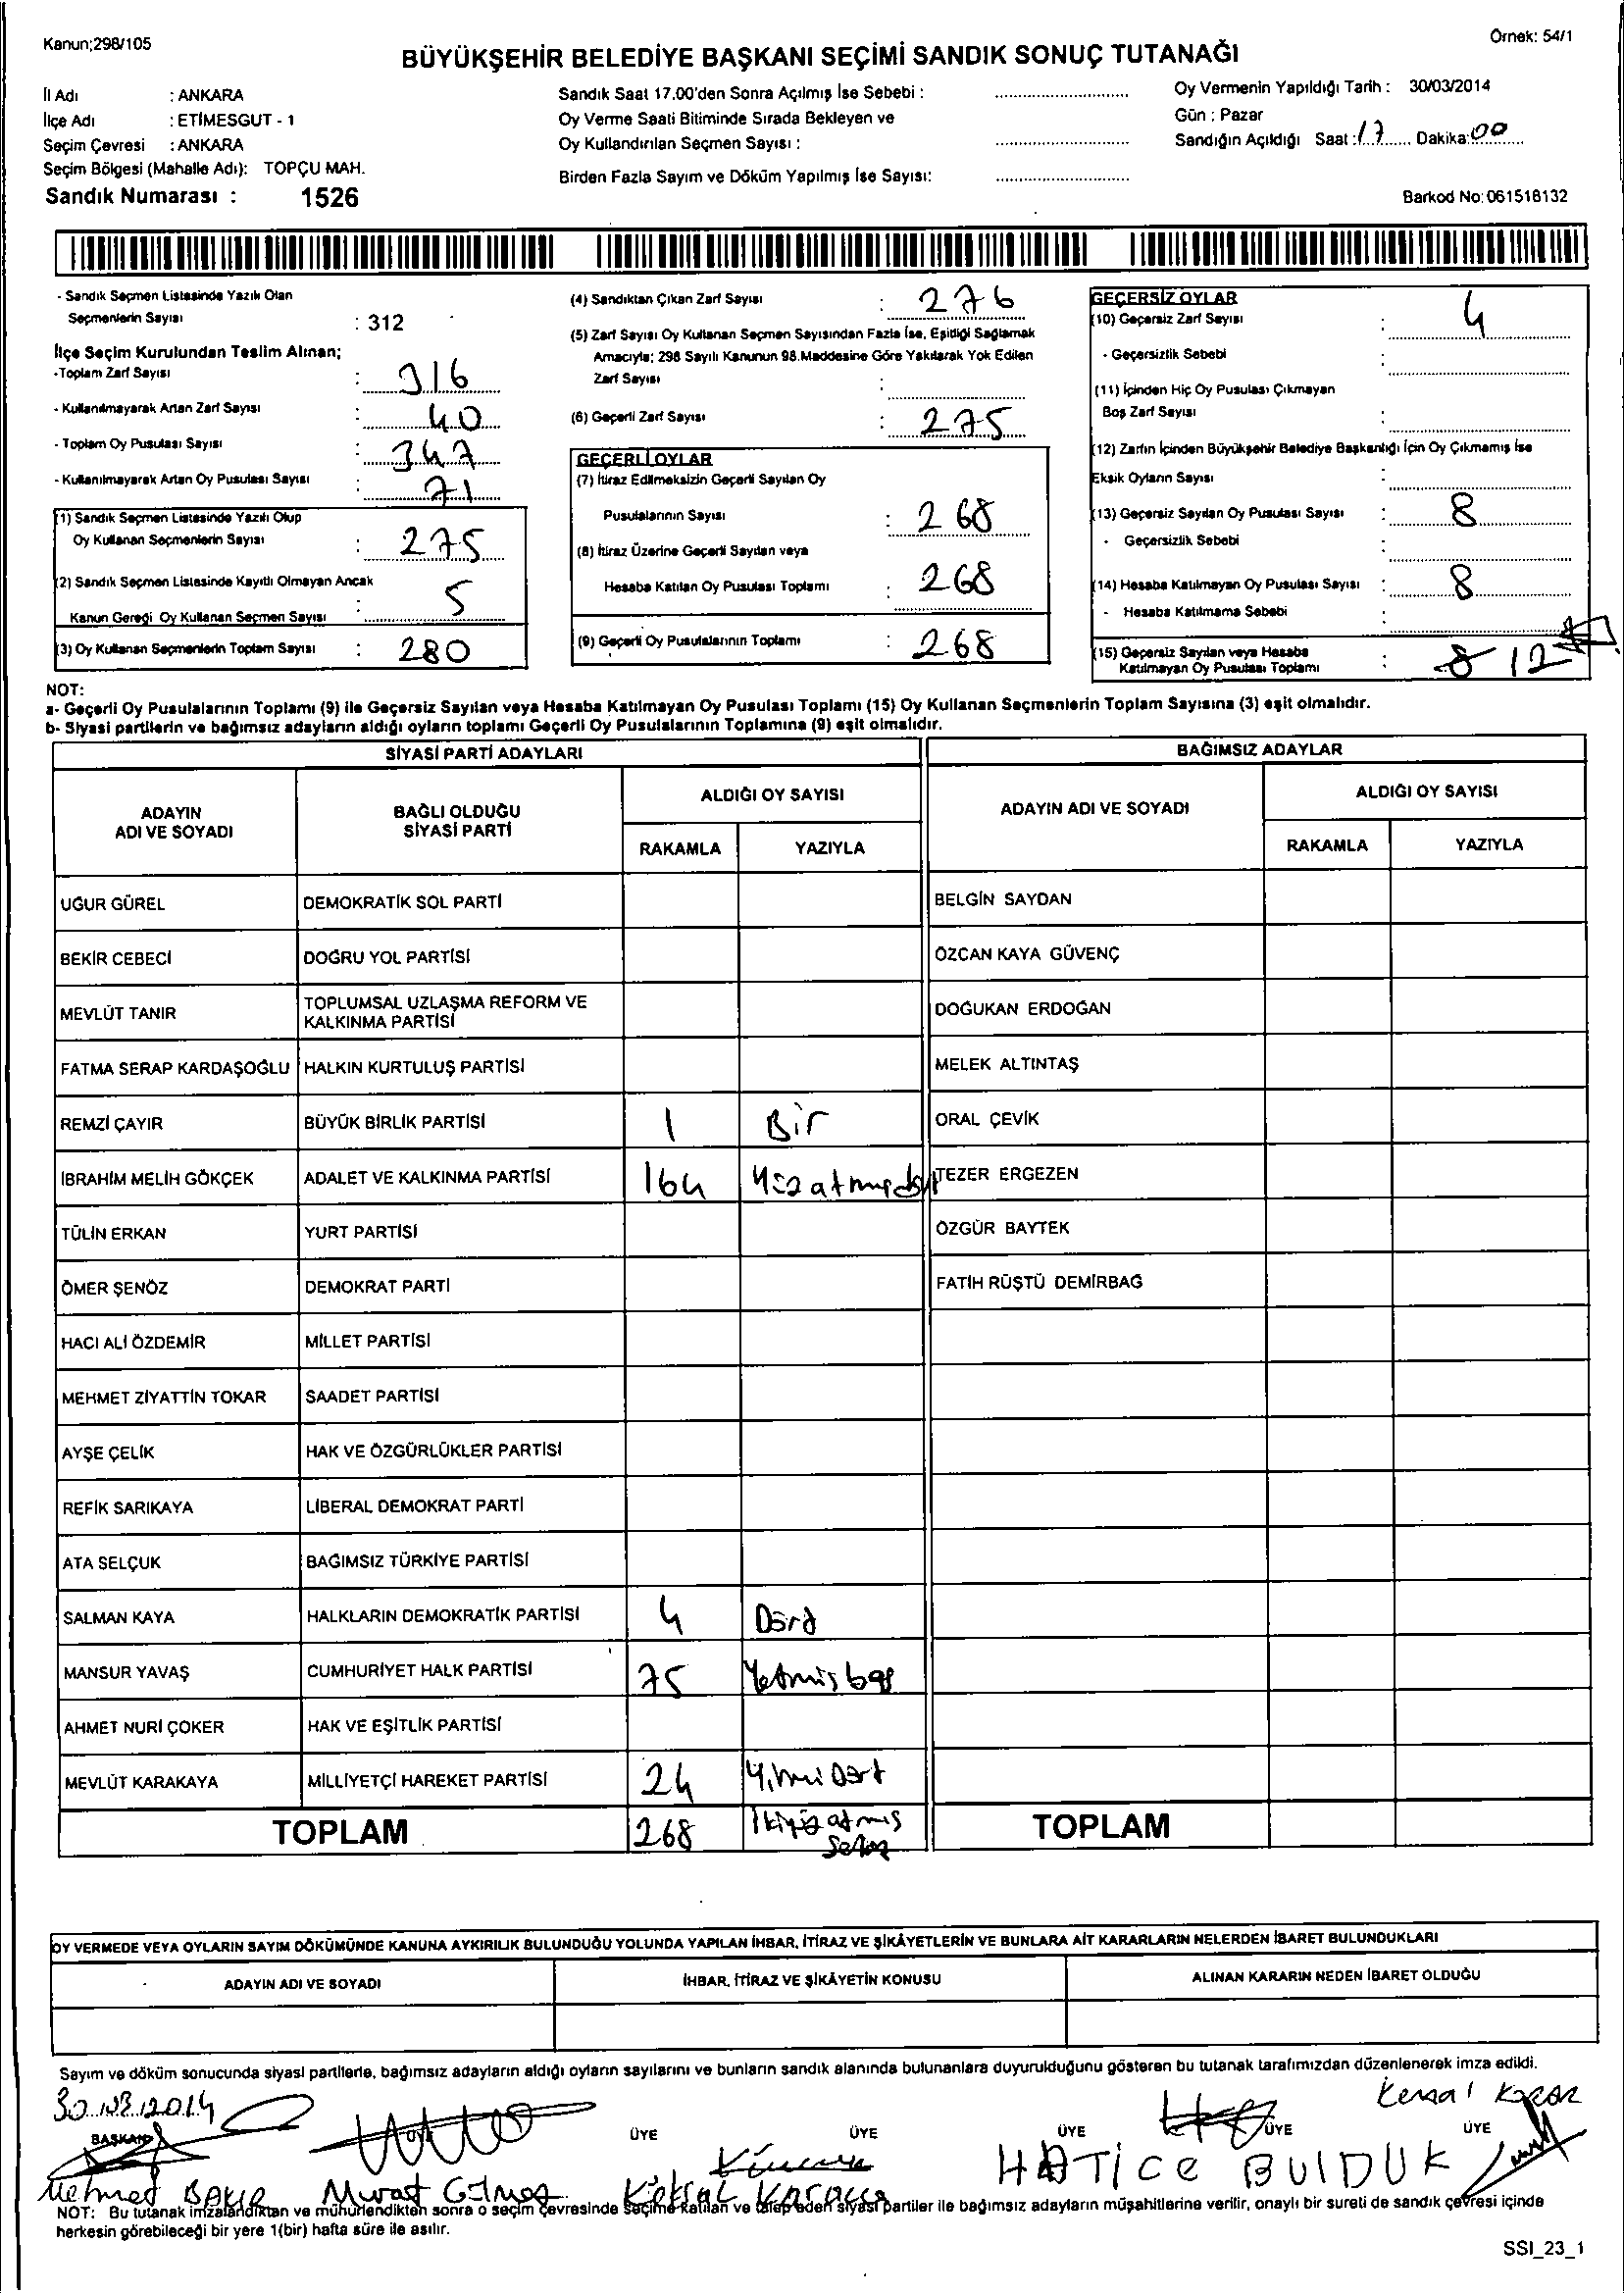 Kanun;298/105
Örnek: 54/1
BÜYÜKŞEHİR BELEDİYE BAŞKANI SEÇİMİ SANDIK SONUÇ TUTANAĞI
İl Adı : ANKARA
İlçe Adı : ETİMESGUT - 1
Seçim Çevresi : ANKARA
Seçim Bölgesi (Mahalle Adı): TOPÇU MAH.
Sandık Numarası : 1526
Sandık Saat 17.00'den Sonra Açılmış İse Sebebi :
Oy Verme Saati Bitiminde Sırada Bekleyen ve
Oy Kullandırılan Seçmen Sayısı :
Birden Fazla Sayım ve Döküm Yapılmış İse Sayısı:
Oy Vermenin Yapıldığı Tarih : 30/03/2014
Gün : Pazar
Sandığın Açıldığı Saat : 17 Dakika: 00
Barkod No: 061518132
- Sandık Seçmen Listesinde Yazılı Olan
Seçmenlerin Sayısı : 312
İlçe Seçim Kurulundan Teslim Alınan;
-Toplam Zarf Sayısı : 316
- Kullanılmayarak Artan Zarf Sayısı : 40
- Toplam Oy Pusulası Sayısı : 347
- Kullanılmayarak Artan Oy Pusulası Sayısı : 71
(1) Sandık Seçmen Listesinde Yazılı Olup
Oy Kullanan Seçmenlerin Sayısı : 275
(2) Sandık Seçmen Listesinde Kayıtlı Olmayan Ancak
Kanun Gereği Oy Kullanan Seçmen Sayısı : 5
(3) Oy Kullanan Seçmenlerin Toplam Sayısı : 280
(4) Sandıktan Çıkan Zarf Sayısı : 276
(5) Zarf Sayısı Oy Kullanan Seçmen Sayısından Fazla İse, Eşitliği Sağlamak
Amacıyla; 298 Sayılı Kanunun 98.Maddesine Göre Yakılarak Yok Edilen
Zarf Sayısı :
(6) Geçerli Zarf Sayısı : 275
GEÇERLİ OYLAR
(7) İtiraz Edilmeksizin Geçerli Sayılan Oy
Pusulalarının Sayısı : 268
(8) İtiraz Üzerine Geçerli Sayılan veya
Hesaba Katılan Oy Pusulası Toplamı : 268
(9) Geçerli Oy Pusulalarının Toplamı : 268
GEÇERSİZ OYLAR
(10) Geçersiz Zarf Sayısı : 4
- Geçersizlik Sebebi :
(11) İçinden Hiç Oy Pusulası Çıkmayan
Boş Zarf Sayısı :
(12) Zarfın İçinden Büyükşehir Belediye Başkanlığı İçin Oy Çıkmamış İse
Eksik Oyların Sayısı :
(13) Geçersiz Sayılan Oy Pusulası Sayısı : 8
- Geçersizlik Sebebi :
(14) Hesaba Katılmayan Oy Pusulası Sayısı : 8
- Hesaba Katılmama Sebebi :
(15) Geçersiz Sayılan veya Hesaba
Katılmayan Oy Pusulası Toplamı : 8 12
NOT:
a- Geçerli Oy Pusulalarının Toplamı (9) ile Geçersiz Sayılan veya Hesaba Katılmayan Oy Pusulası Toplamı (15) Oy Kullanan Seçmenlerin Toplam Sayısına (3) eşit olmalıdır.
b- Siyasi partilerin ve bağımsız adayların aldığı oyların toplamı Geçerli Oy Pusulalarının Toplamına (9) eşit olmalıdır.
SİYASİ PARTİ ADAYLARI
BAĞIMSIZ ADAYLAR
ADAYIN ADI VE SOYADI
BAĞLI OLDUĞU SİYASİ PARTİ
ALDIĞI OY SAYISI
RAKAMLA YAZIYLA
ADAYIN ADI VE SOYADI
ALDIĞI OY SAYISI
RAKAMLA YAZIYLA
UĞUR GÜREL DEMOKRATİK SOL PARTİ BELGİN SAYDAN
BEKİR CEBECİ DOĞRU YOL PARTİSİ ÖZCAN KAYA GÜVENÇ
MEVLÜT TANIR TOPLUMSAL UZLAŞMA REFORM VE KALKINMA PARTİSİ DOĞUKAN ERDOĞAN
FATMA SERAP KARDAŞOĞLU HALKIN KURTULUŞ PARTİSİ MELEK ALTINTAŞ
REMZİ ÇAYIR BÜYÜK BİRLİK PARTİSİ 1 Bir ORAL ÇEVİK
İBRAHİM MELİH GÖKÇEK ADALET VE KALKINMA PARTİSİ 164 TEZER ERGEZEN
TÜLİN ERKAN YURT PARTİSİ ÖZGÜR BAYTEK
ÖMER ŞENÖZ DEMOKRAT PARTİ FATİH RÜŞTÜ DEMİRBAĞ
HACI ALİ ÖZDEMİR MİLLET PARTİSİ
MEHMET ZİYATTİN TOKAR SAADET PARTİSİ
AYŞE ÇELİK HAK VE ÖZGÜRLÜKLER PARTİSİ
REFİK SARIKAYA LİBERAL DEMOKRAT PARTİ
ATA SELÇUK BAĞIMSIZ TÜRKİYE PARTİSİ
SALMAN KAYA HALKLARIN DEMOKRATİK PARTİSİ 4 Dörd
MANSUR YAVAŞ CUMHURİYET HALK PARTİSİ 75 Yetmiş beş
AHMET NURİ ÇOKER HAK VE EŞİTLİK PARTİSİ
MEVLÜT KARAKAYA MİLLİYETÇİ HAREKET PARTİSİ 24 Yirmi Dört
TOPLAM 268 İkiyüz atmış sekiz TOPLAM
OY VERMEDE VEYA OYLARIN SAYIM DÖKÜMÜNDE KANUNA AYKIRILIK BULUNDUĞU YOLUNDA YAPILAN İHBAR, İTİRAZ VE ŞİKÂYETLERİN VE BUNLARA AİT KARARLARIN NELERDEN İBARET BULUNDUKLARI
ADAYIN ADI VE SOYADI İHBAR, İTİRAZ VE ŞİKÂYETİN KONUSU ALINAN KARARIN NEDEN İBARET OLDUĞU
Sayım ve döküm sonucunda siyasi partilerle, bağımsız adayların aldığı oyların sayılarını ve bunların sandık alanında bulunanlara duyurulduğunu gösteren bu tutanak tarafımızdan düzenlenerek imza edildi.
30.03.2014
BAŞKAN ÜYE ÜYE ÜYE ÜYE ÜYE ÜYE
Mehmet Murat Köksal Karaca HATİCE BULDUK
NOT: Bu tutanak imzalandıktan ve mühürlendikten sonra o seçim çevresinde seçime katılan ve talep eden siyasi partiler ile bağımsız adayların müşahitlerine verilir, onaylı bir sureti de sandık çevresi içinde
herkesin görebileceği bir yere 1(bir) hafta süre ile asılır.
SSI_23_1